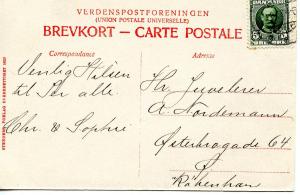 VERDENSPOSTFORENINGEN
(UNION POSTALE UNIVERSELLE)
BREVKORT - CARTE POSTALE
Correspondance
Adresse
DANMARK
5 ØRE 5
Venlig Hilsen
til Jer alle
Chr. & Sophie
Hr. Juvelerer
A. Nordemann
Østerbrogade 64
København